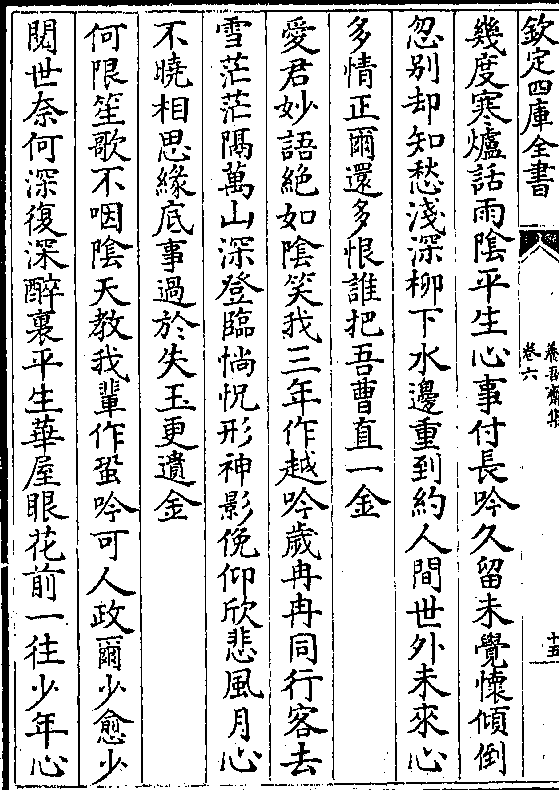 欽定四庫全書
養吾齋集
卷六
十五
幾度寒爐話雨陰平生心事付長吟久留未覺懷傾倒
忽别却知愁淺深柳下水邊重到約人間世外未來心
多情正爾還多恨誰把吾曹直一金
愛君妙語絶如陰笑我三年作越吟歲冉冉同行客去
雪茫茫隔萬山深登臨惝怳形神影俛仰欣悲風月心
不曉相思緣底事過於失玉更遺金
何限笙歌不咽陰天教我輩作蛩吟可人政爾少愈少
閱世奈何深復深醉裏平生華屋眼花前一往少年心